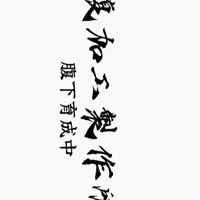 加工製作
腹下育成中